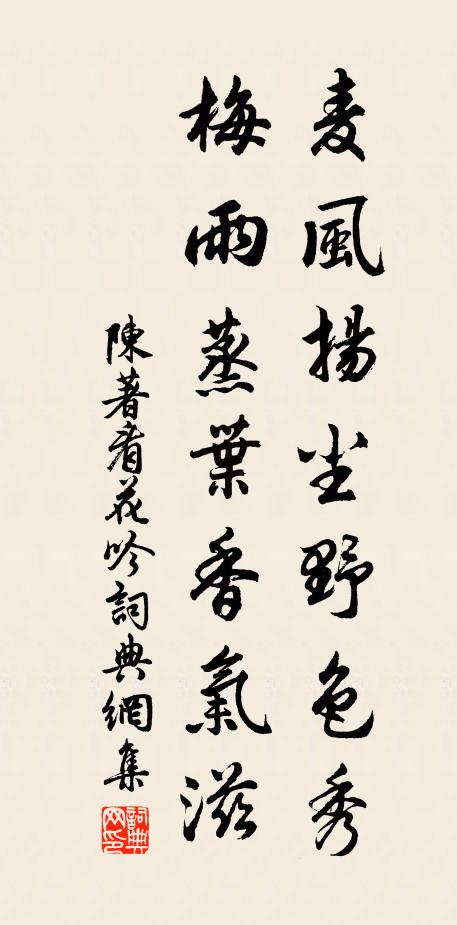 麦風揚尘野色秀
梅雨蒸葉香氣滋
陳著看花吟詞典網集
詞典网印